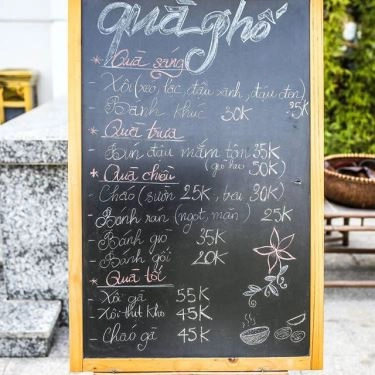 quà phố
* Quà sáng
- Xôi (xéo, lạc, đậu xanh, đậu đen) 25K
- Bánh khúc 30K
* Quà trưa
- Bún đậu mắm tôm 35K
(giò 50K)
* Quà chiều
- Cháo (sườn 25K, trai 30K)
- Bánh rán (ngọt, mặn) 25K
- Bánh giò 35K
- Bánh gối 20K
* Quà tối
- Xôi gà 55K
- Xôi thịt kho 45K
- Cháo gà 45K